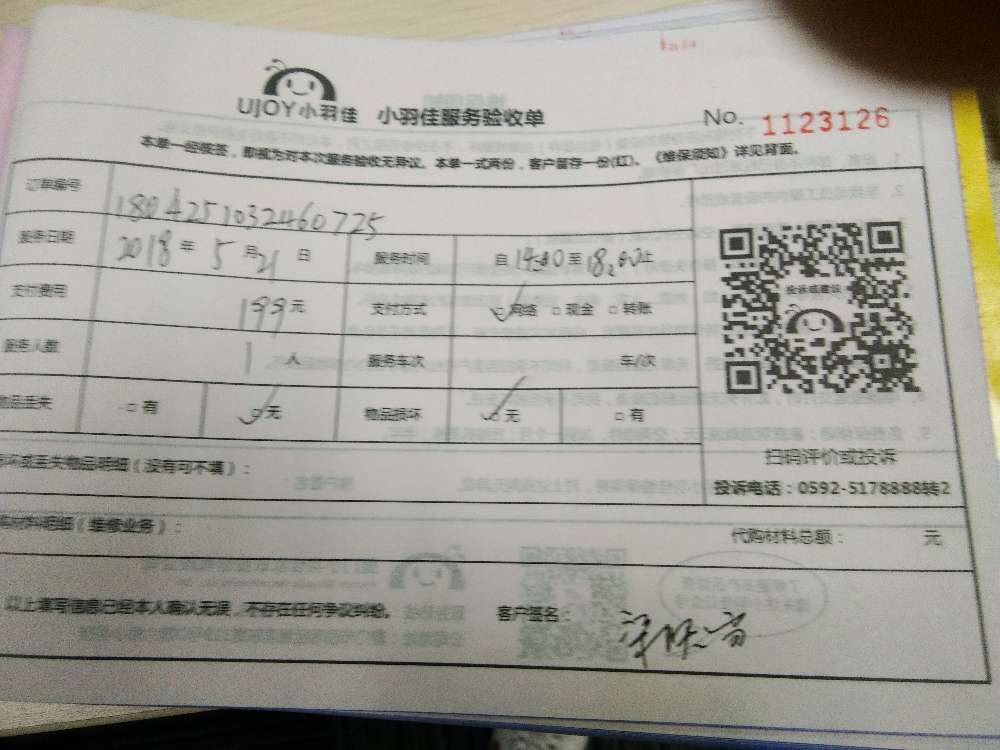 UJOY小羽佳 小羽佳服务验收单 No. 1123126
本单一经签签，即视为对本次服务验收无异议。本单一式两份，客户留存一份(红)。《维保须知》详见背面。
订单编号 1804251032460725
服务日期 2018年5月21日 服务时间 自14:30至18:00止
支付费用 199元 支付方式 网络 □现金 □转账
服务人数 1人 服务车次 车/次
物品丢失 □有 □无 物品损坏 □无 □有
损坏或丢失物品明细（没有可不填）：
投诉或建议
扫码评价或投诉
投诉电话：0592-5178888转2
材料明细（维修业务）： 代购材料总额： 元
以上填写信息已经本人确认无误，不存在任何争议纠纷。 客户签名：